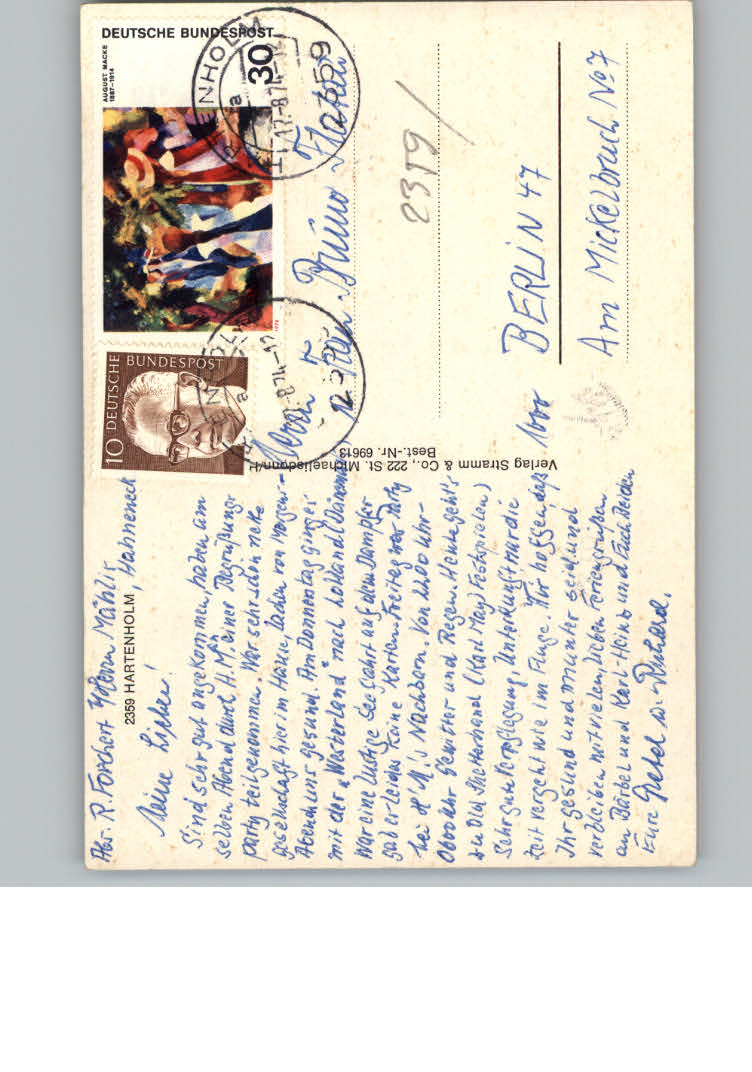 Abs. R. Forchert b/Herrn Mählis, Hahneneck
2359 HARTENHOLM
Meine Lieben!
Sind sehr gut angekommen, haben am
selben Abend durch H.M. einer Begrüßungs-
party teilgenommen. War sehr schön nette
Gesellschaft hier im Hause, baden von morgens -
Abend uns gesund. Am Donnerstag ging es
mit der "Westerland" nach Lolland (Dänemark)
War eine lustige Seefahrt auf dem Dampfer
gab es leider keine Karten. Freitag war Party
bei H. M.'s Nachbarn. Von Uhr-
Uhr Gewitter und Regen. Heute geht's
zu Old Shatterhand (Karl May) Festspielen)
Sehr gute Verpflegung, Unterkunft nur die
Zeit vergeht wie im Fluge. Wir hoffen, daß
Ihr gesund und munter seid und
verbleiben mit vielen lieben Feriengrüßen
an Bärbel und Karl-Heinz und Euch beiden
Eure Gretel u. Richard.
Verlag Stramm & Co., 222 St. Michaelisdonn/H.
Best.-Nr. 69613
DEUTSCHE BUNDESPOST
30
AUGUST MACKE
1887-1914
DEUTSCHE BUNDESPOST
10
2359
17.-8.74
a
2359/
Herrn u.
Frau Bruno
1000 BERLIN 47
Am Mickelbruch No 7